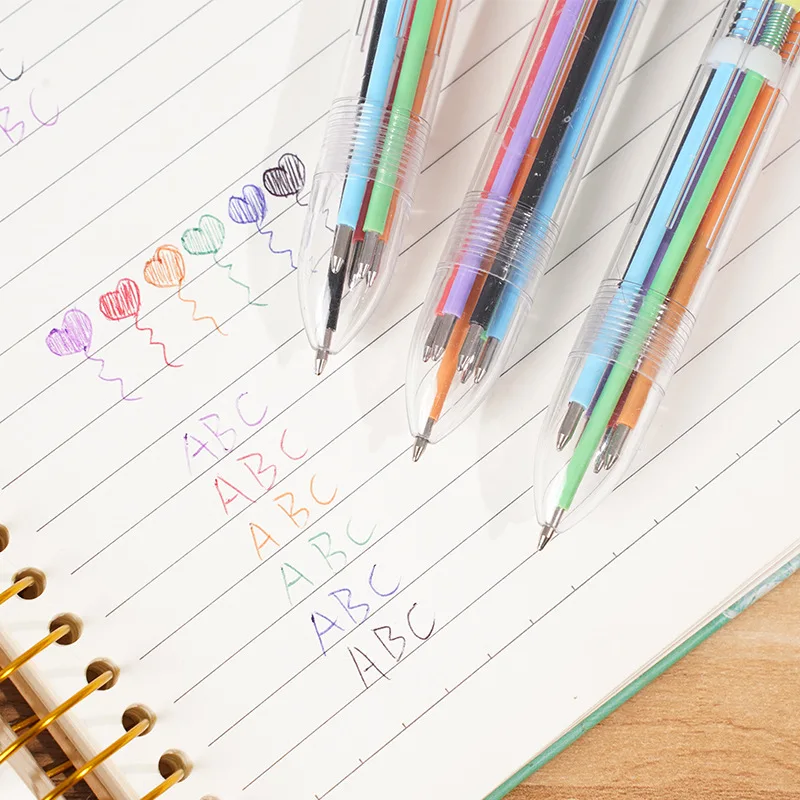 BC
ABC
ABC
ABC
ABC
ABC
ABC